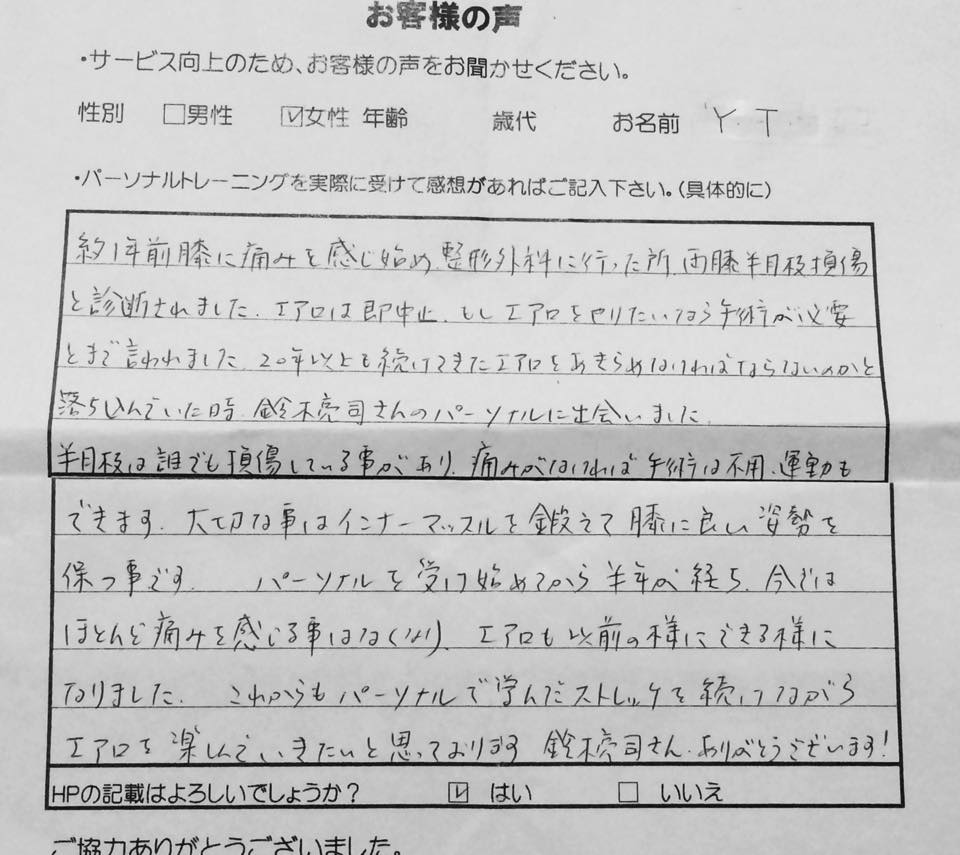 お客様の声
・サービス向上のため、お客様の声をお聞かせください。
性別 □男性 ☑女性 年齢 歳代 お名前 Y.T.
・パーソナルトレーニングを実際に受けて感想があればご記入下さい。(具体的に)
約1年前膝に痛みを感じ始め、整形外科に行った所、両膝半月板損傷
と診断されました。エアロは即中止、もしエアロをやりたいなら手術が必要
とまで言われました。20年以上も続けてきたエアロをあきらめなければならないのかと
落ち込んでいた時、鈴木亮司さんのパーソナルに出会いました。
半月板は誰でも損傷している事があり、痛みがなければ手術は不用、運動も
できます。大切な事はインナーマッスルを鍛えて膝に良い姿勢を
保つ事です。 パーソナルを受け始めてから半年が経ち、今では
ほとんど痛みを感じる事はなくなり、エアロも以前の様にできる様に
なりました。 これからもパーソナルで学んだストレッチを続けながら
エアロを楽しんでいきたいと思っております。鈴木亮司さん、ありがとうございます!
HPの記載はよろしいでしょうか? ☑ はい □ いいえ
ご協力ありがとうございました。